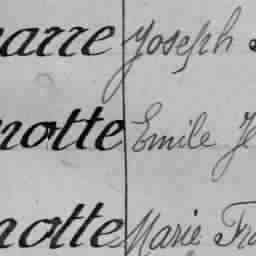 arre Joseph
notte Emile
notte Marie